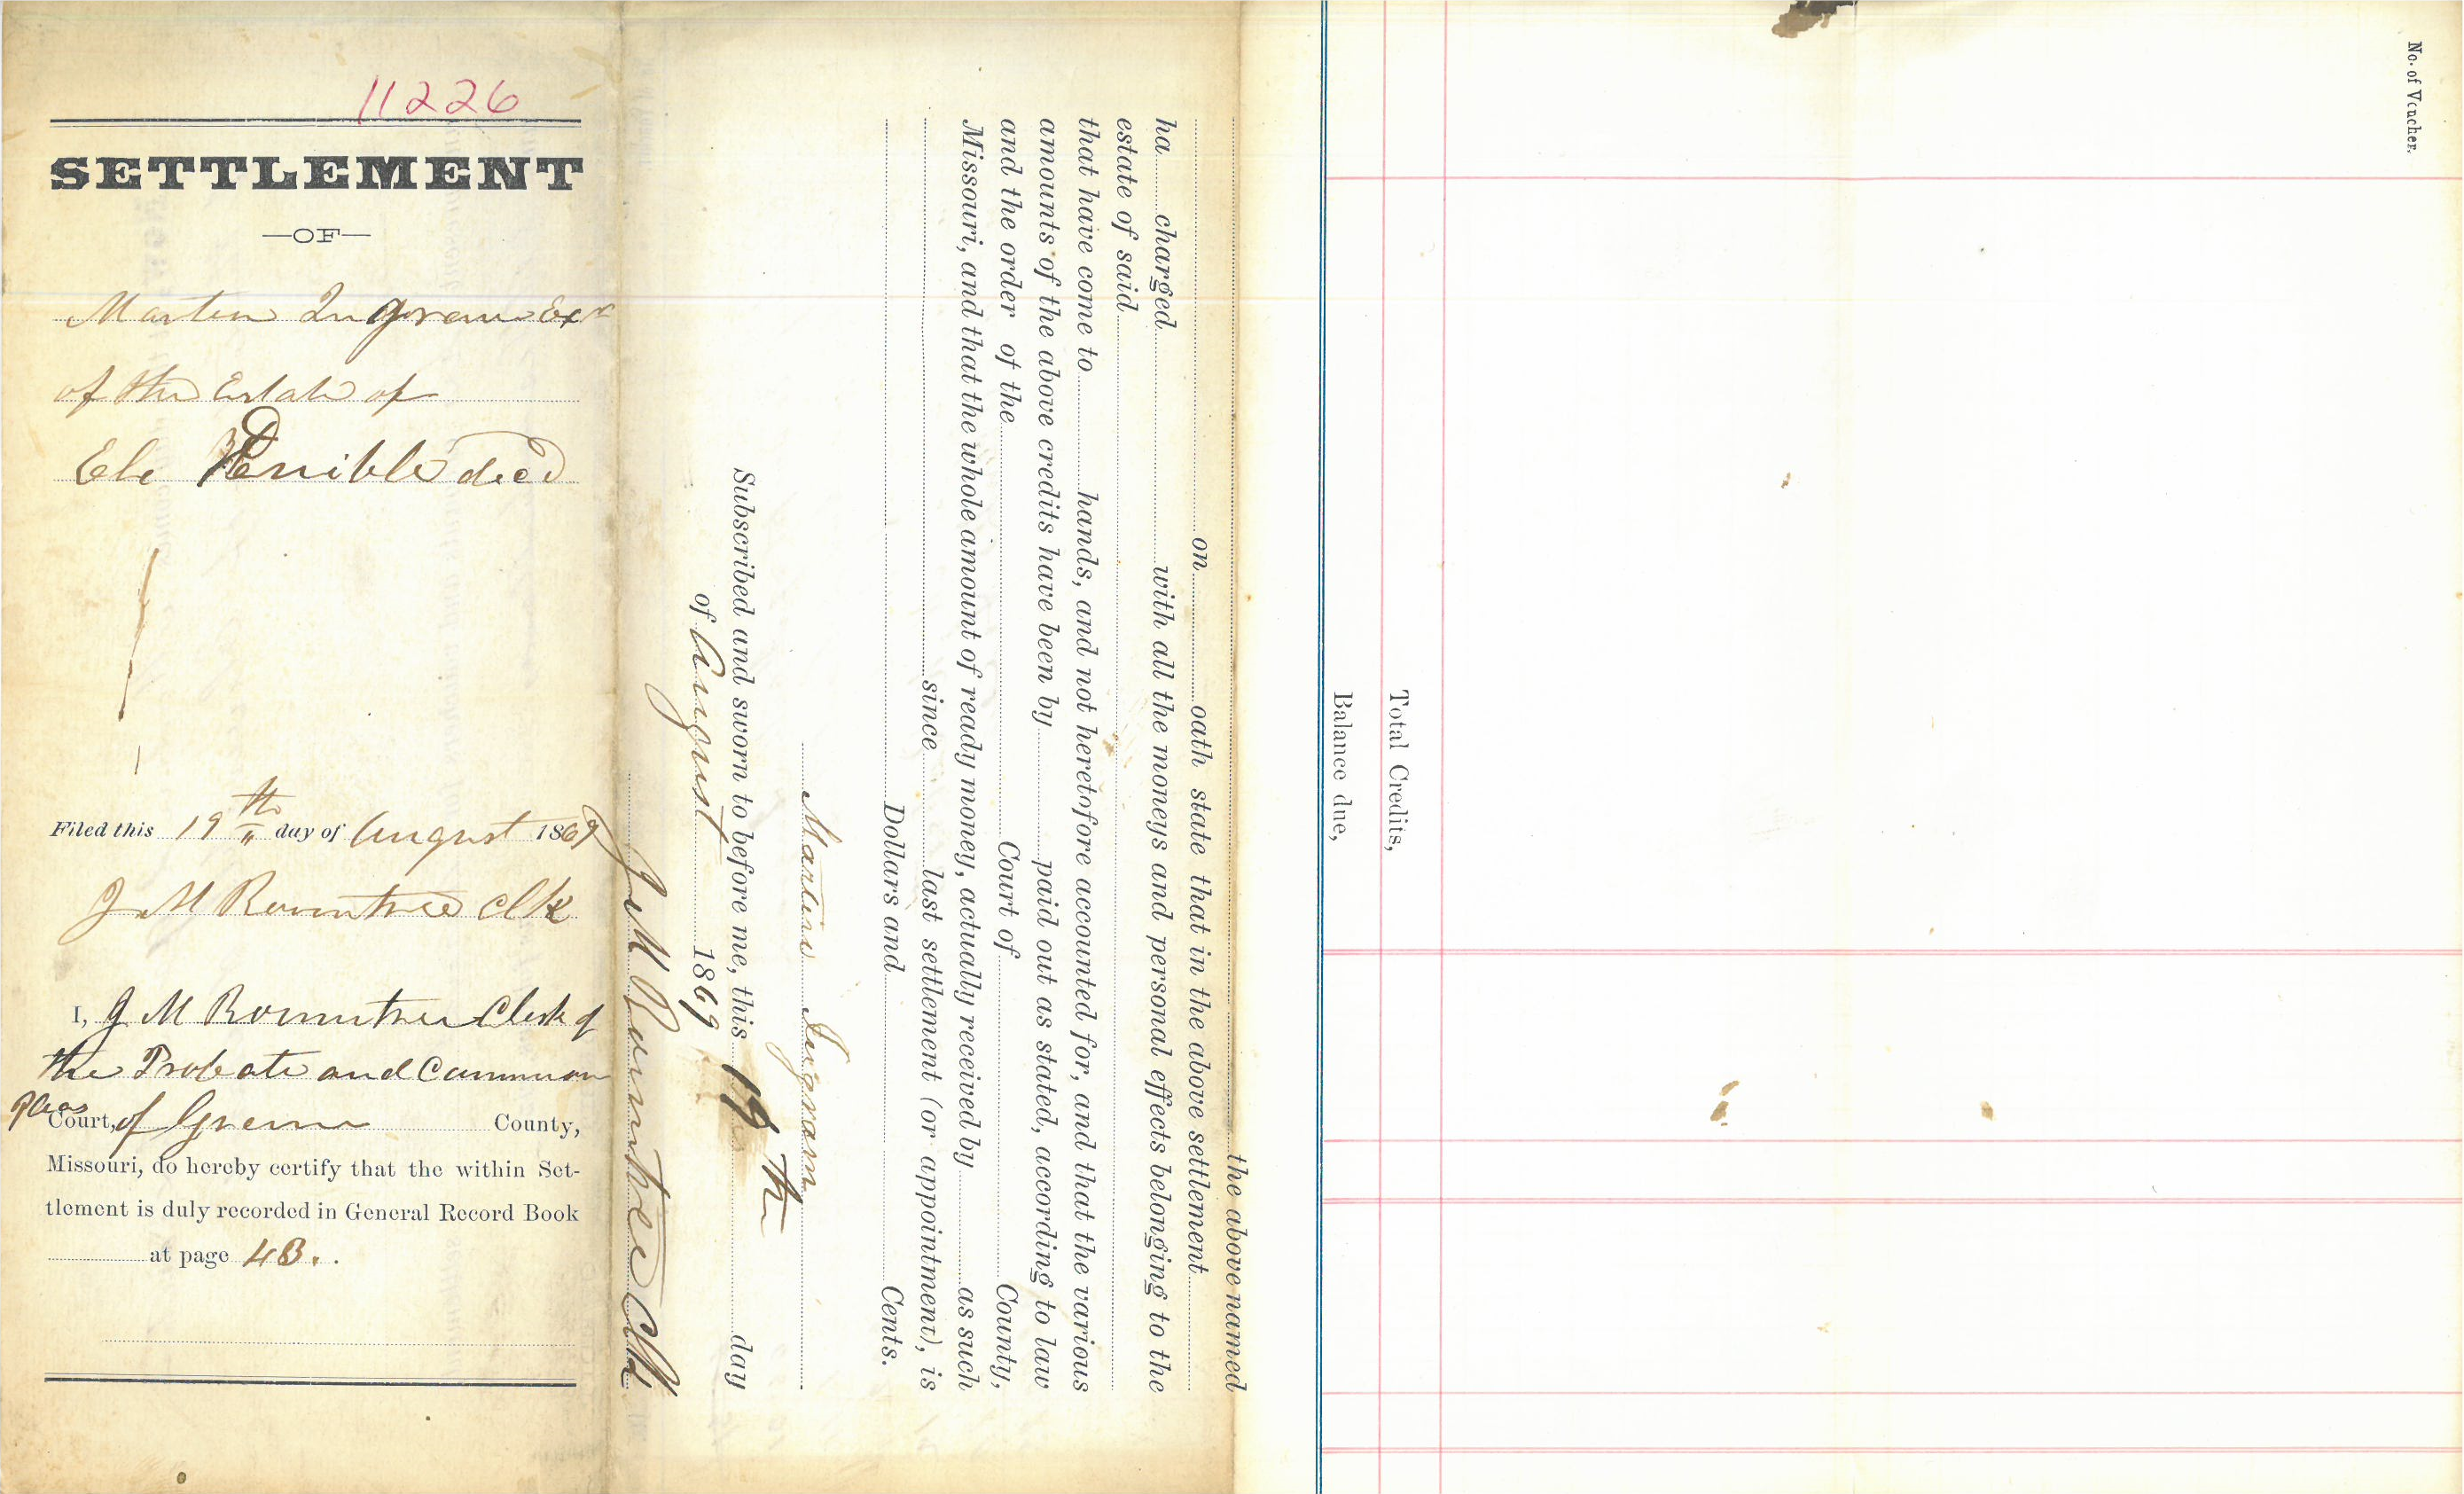 11226
SETTLEMENT
—OF—
Martin Ingram Exr
of the Estate of
Ele decd
Filed this 19th day of August 1869
J M Rountree Clk
I, J M Rountree Clerk of
the Probate and Common
Pleas Court, of Greene County,
Missouri, do hereby certify that the within Set-
tlement is duly recorded in General Record Book
at page 43.
the above named
on oath state that in the above settlement
ha charged with all the moneys and personal effects belonging to the
estate of said
that have come to hands, and not heretofore accounted for, and that the various
amounts of the above credits have been by paid out as stated, according to law
and the order of the Court of County,
Missouri, and that the whole amount of ready money, actually received by as such
since last settlement (or appointment), is
Dollars and Cents.
Martin Ingram
Subscribed and sworn to before me, this 19th day
of August 1869
J M Rountree Clk
No. of Voucher.
Total Credits,
Balance due,